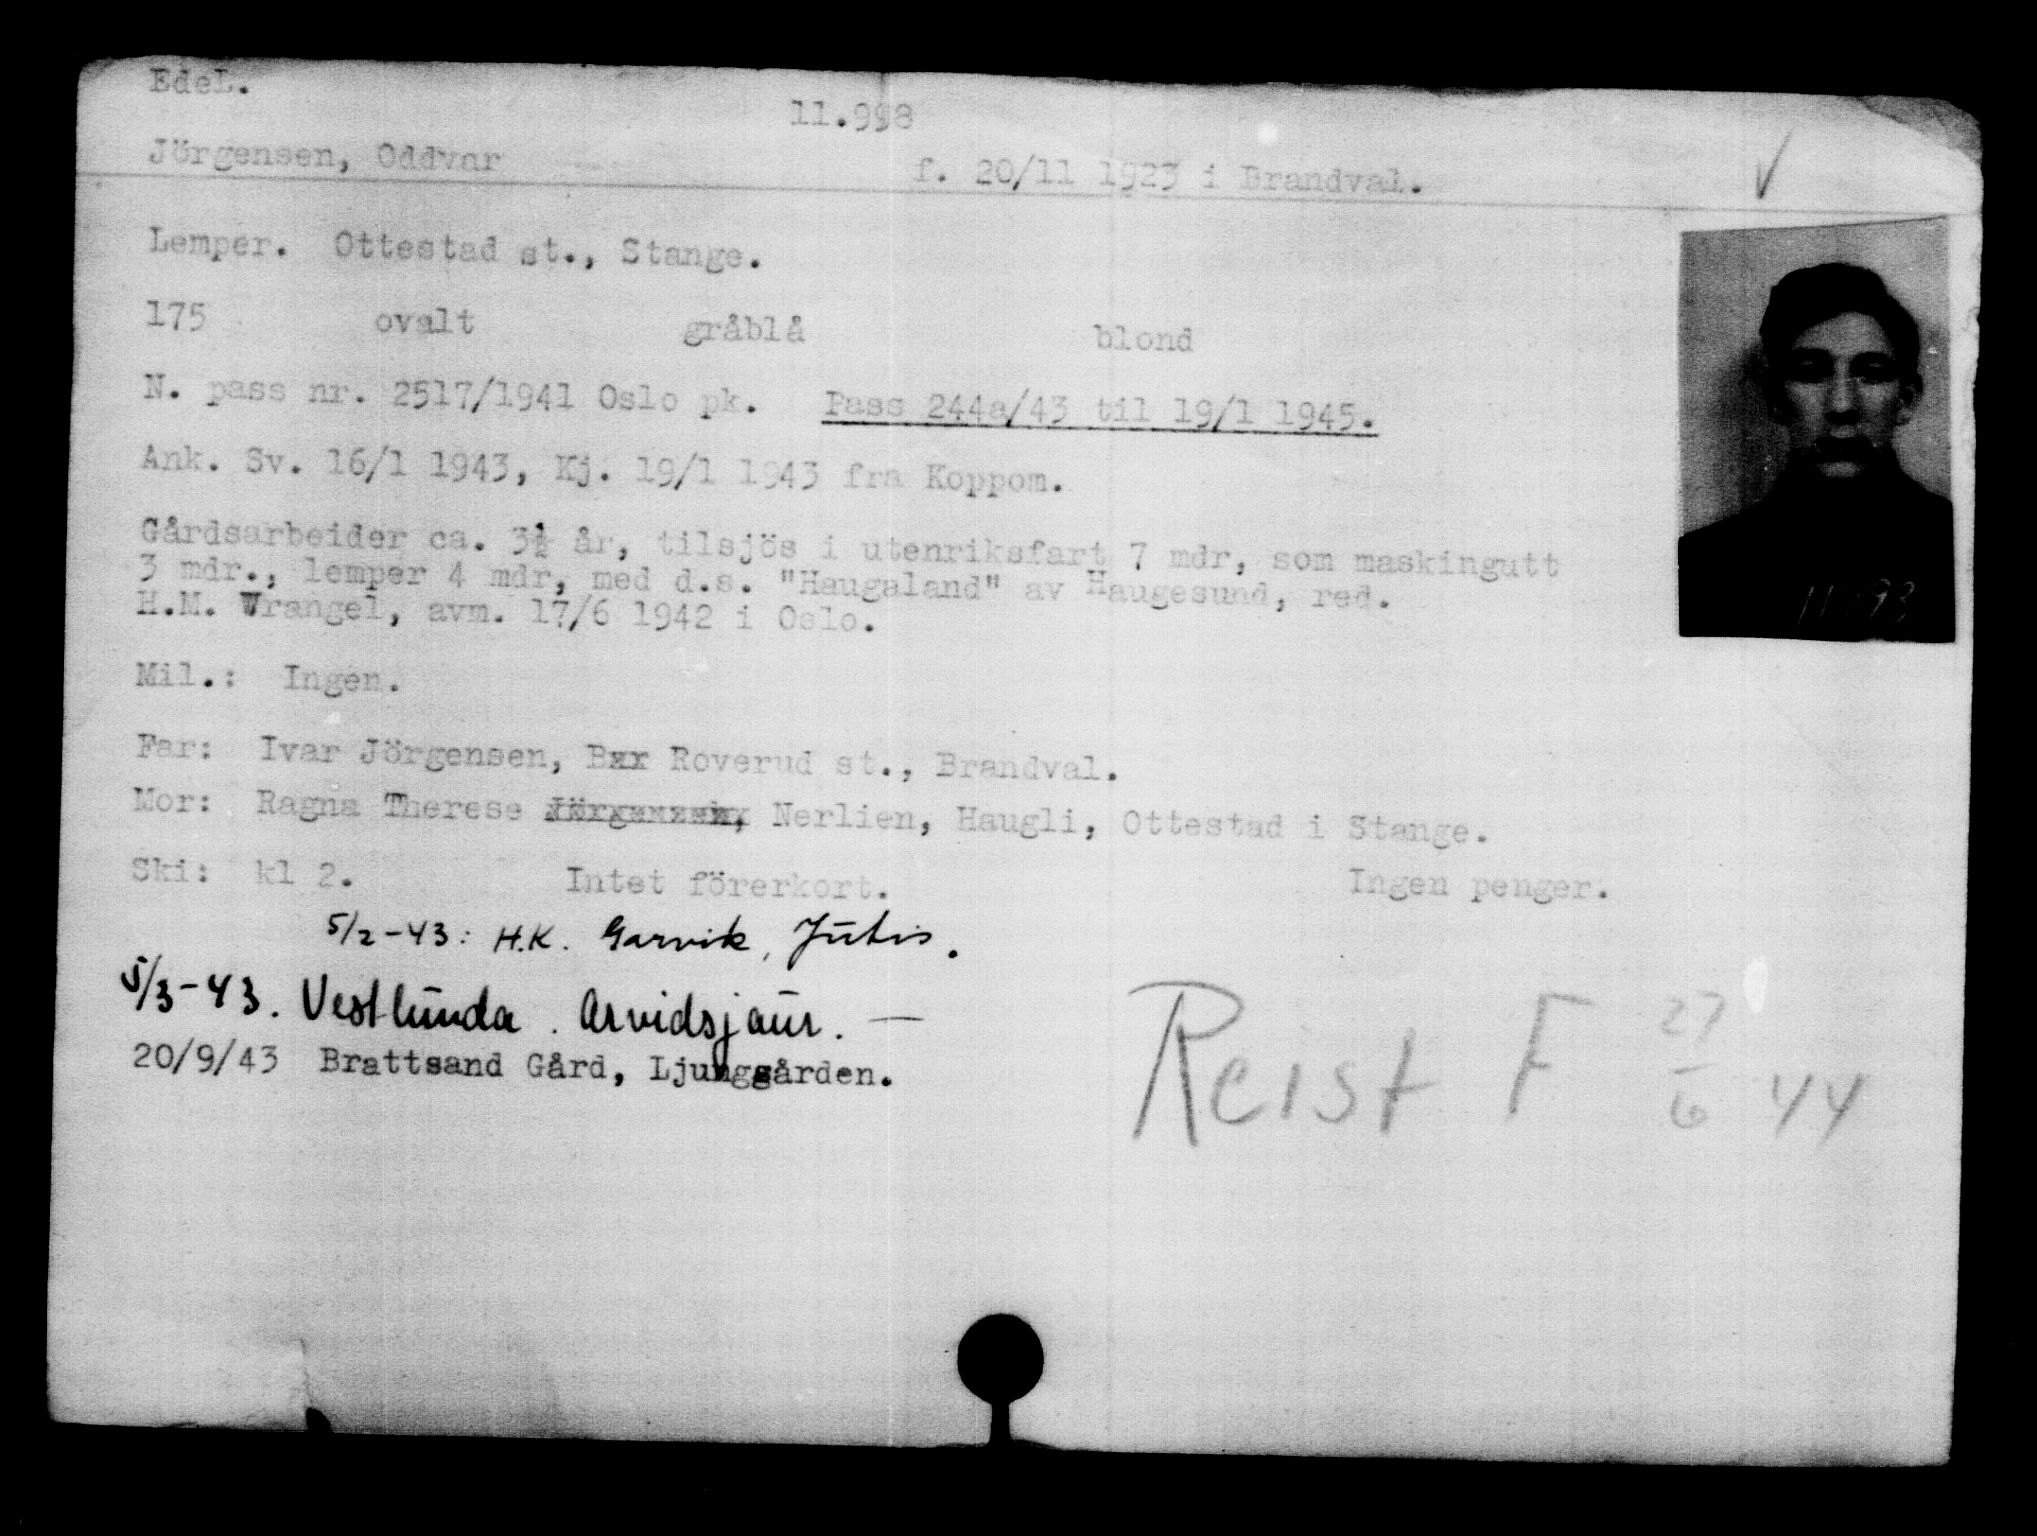 EdeL.
11.998
Jörgensen, Oddvar f. 20/11 1923 i Brandval.
Lemper. Ottestad st., Stange.
175 ovalt gråblå blond
N. pass nr. 2517/1941 Oslo pk. Pass 244a/43 til 19/1 1945.
Ank. Sv. 16/1 1943, Kj. 19/1 1943 fra Koppom.
Gårdsarbeider ca. 3½ år, tilsjös i utenriksfart 7 mdr, som maskingutt
3 mdr., lemper 4 mdr, med d.s. "Haugaland" av Haugesund, red.
H.M. Wrangel, avm. 17/6 1942 i Oslo.
Mil.: Ingen.
Far: Ivar Jörgensen, Roverud st., Brandval.
Mor: Ragna Therese Jörgensen, Nerlien, Haugli, Ottestad i Stange.
Ski: kl 2. Intet förerkort. Ingen penger.
5/2-43: H.K. Garvik, Jutis.
5/3-43. Vestlunda. Arvidsjaur. —
20/9/43 Brattsand Gård, Ljunggården.
Reist F 27/6 44